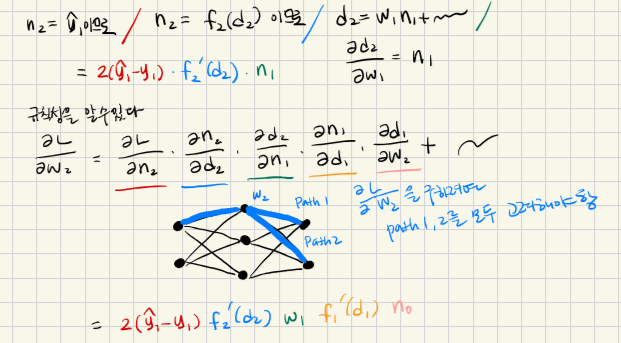 n₂ = ŷ₁이므로 / n₂ = f₂(d₂) 이므로 / d₂ = w₁n₁ + ~ /
∂d₂/∂w₁ = n₁
= 2(ŷ₁-y₁) · f₂'(d₂) · n₁
규칙성을 알 수 있다
∂L/∂w₂ = ∂L/∂n₂ · ∂n₂/∂d₂ · ∂d₂/∂n₁ · ∂n₁/∂d₁ · ∂d₁/∂w₂ + ~
w₂
path 1
path 2
∂L/∂w₂ 을 구하려면
path 1, 2를 모두 고려해야 함
= 2(ŷ₁-y₁) f₂'(d₂) w₁ f₁'(d₁) n₀